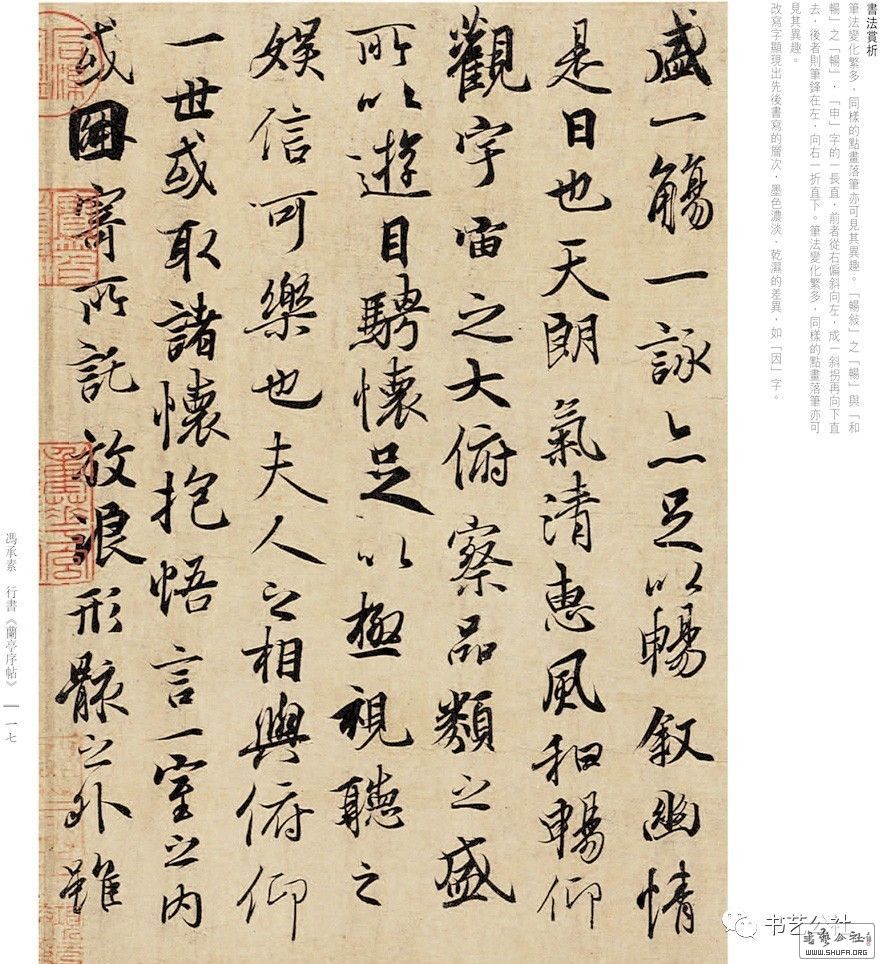 書法賞析
筆法變化繁多，同樣的點畫落筆亦可見其異趣。「暢敍」之「暢」與「和
暢」之「暢」，「申」字的一長直，前者從右偏斜向左，成一斜拐再向下直
去，後者則筆鋒在左，向右一折直下。筆法變化繁多，同樣的點畫落筆亦可
見其異趣。
改寫字顯現出先後書寫的層次，墨色濃淡、乾濕的差異，如「因」字。
盛一觴一詠亦足以暢叙幽情
是日也天朗氣清惠風和暢仰
觀宇宙之大俯察品類之盛
所以遊目騁懷足以極視聽之
娛信可樂也夫人之相與俯仰
一世或取諸懷抱悟言一室之內
或因寄所託放浪形骸之外雖
馮承素 行書《蘭亭序帖》 一七
书艺公社
書藝公社
WWW.SHUFA.ORG